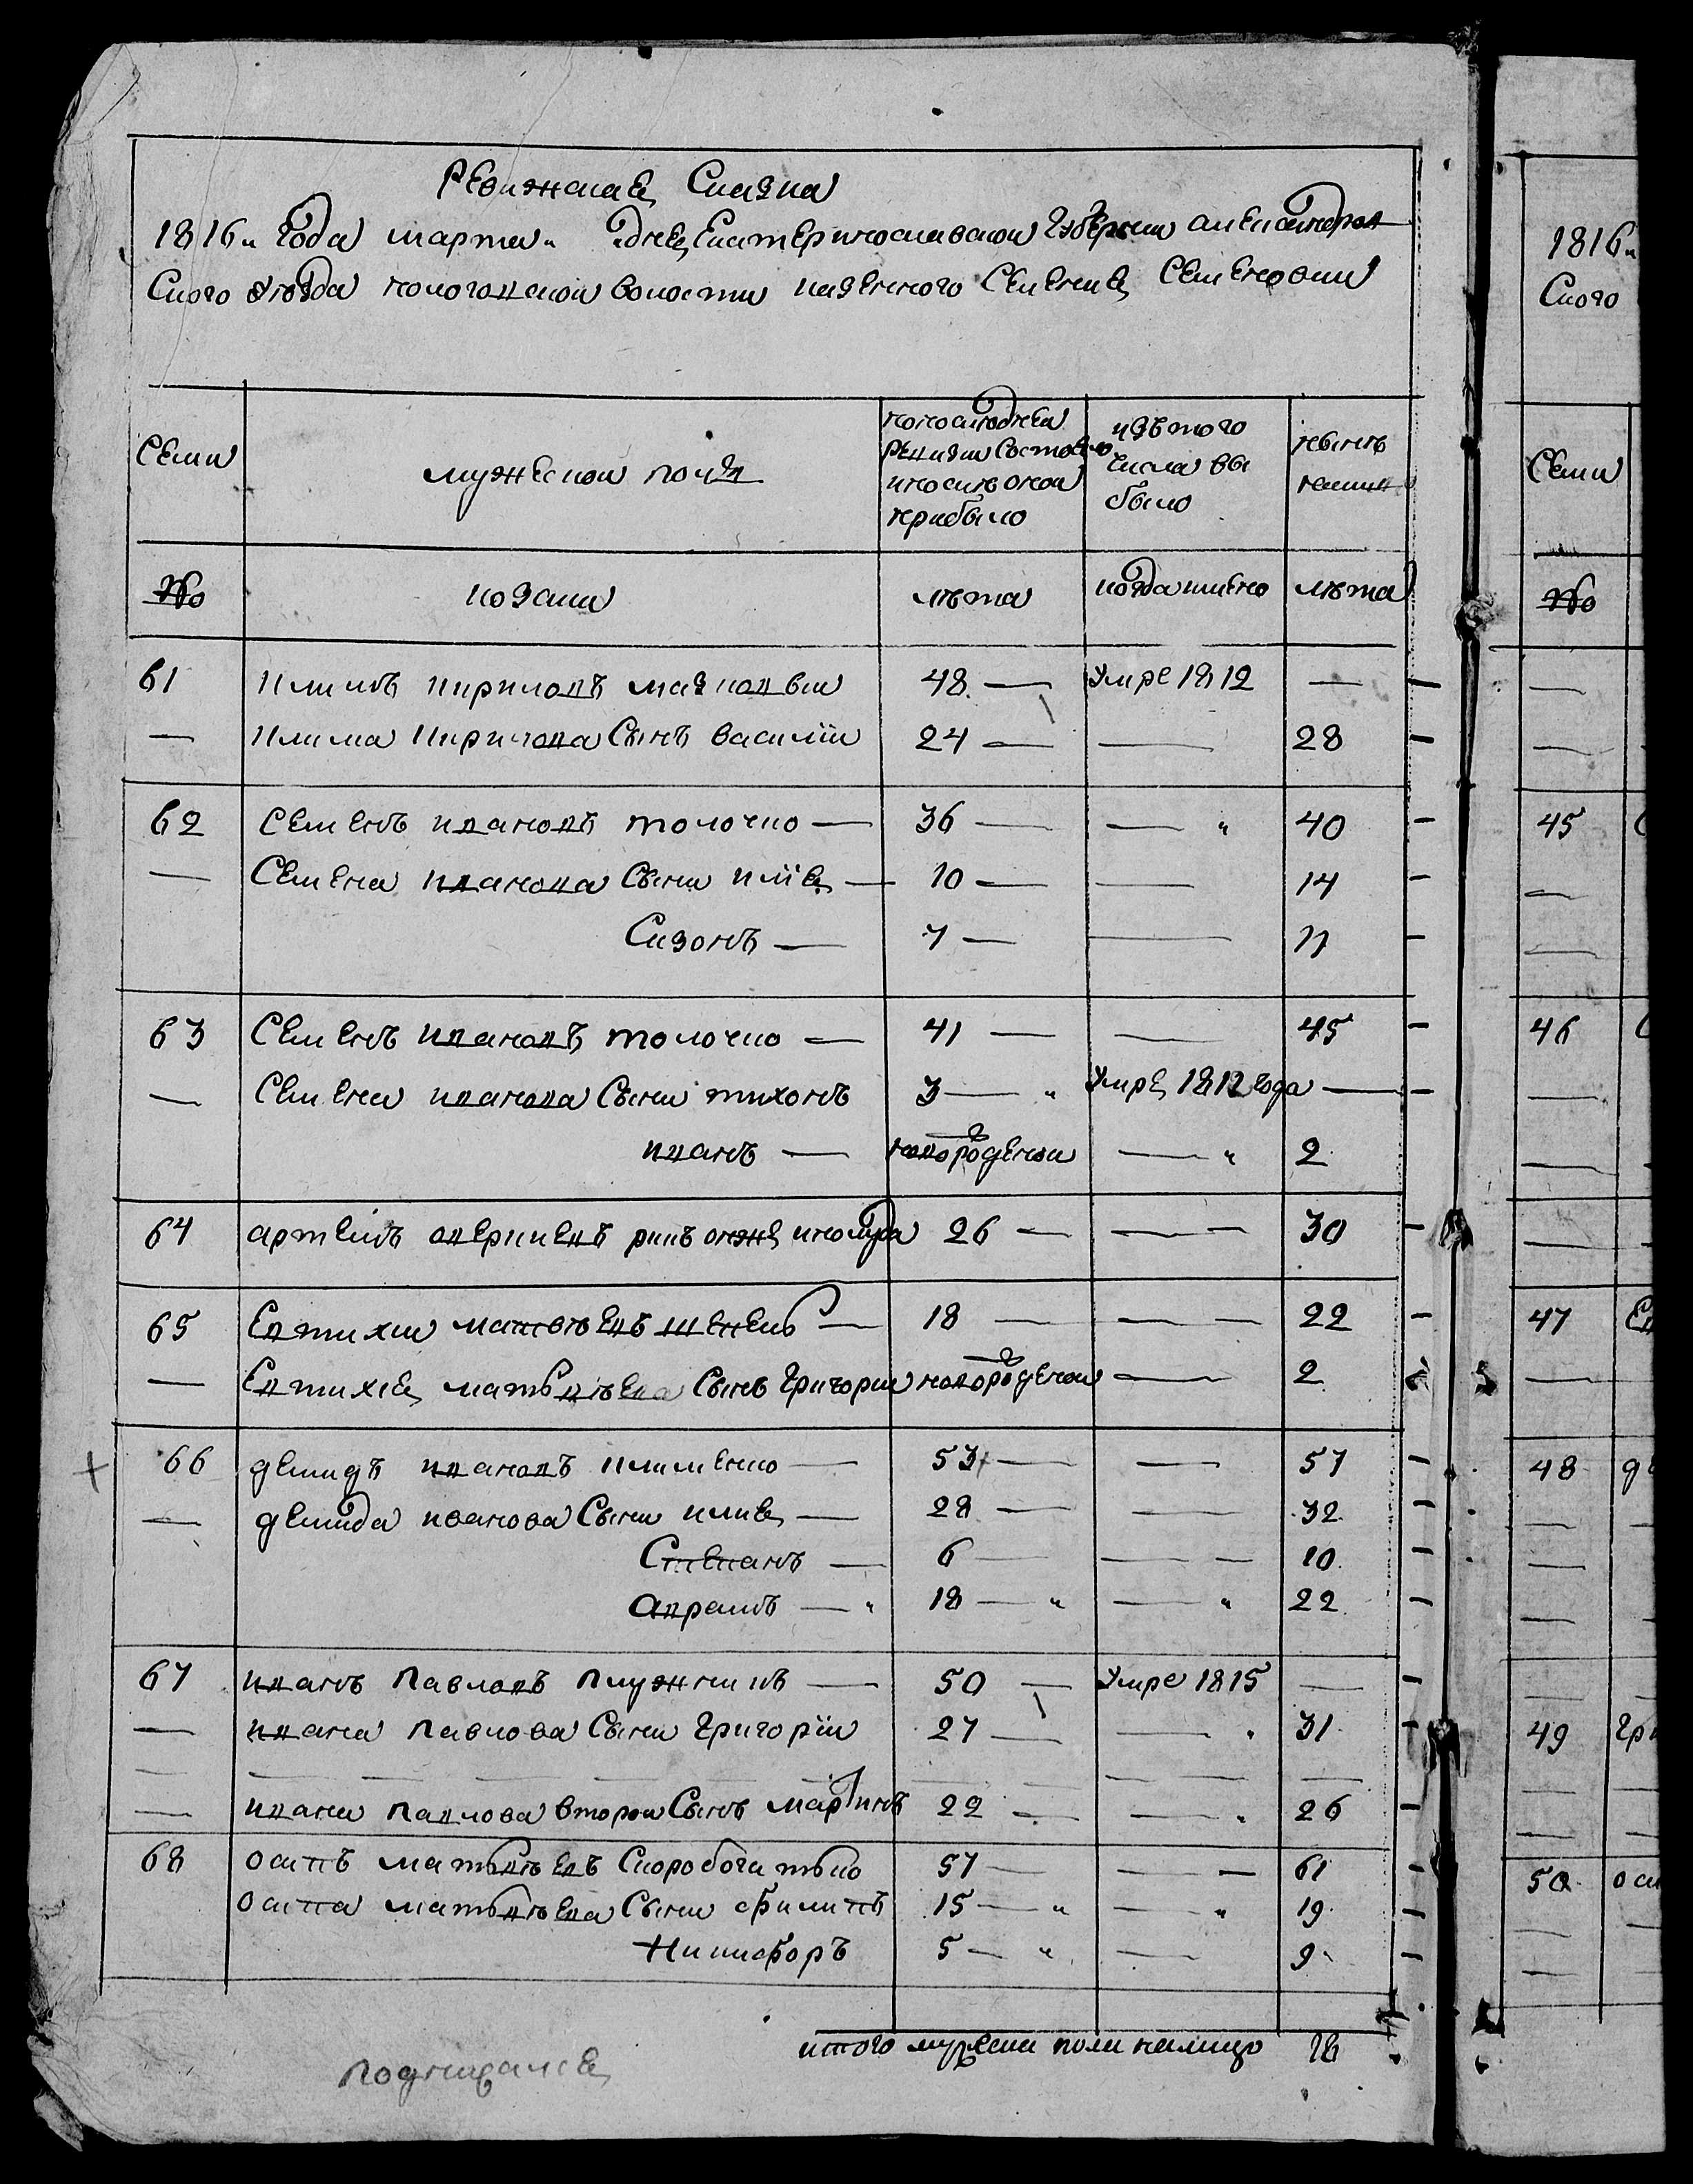 Ревижская Сказка
1816 " Года марта " дня Екатеринославской Губернии александров
Ского уезда пологовской волости казенного Селения Семеновки
Семи
мужеской полъ
по последней
ревизии Состояло
и после оной
прибыло
изъ того
Числа вы
было
ныне
налицо
№
козаки
лѣта
когда имено
лѣта
61 климъ кириловъ маяковъ 48 — умре 1812 —
— клима кирилова Сынъ василiи 24 — — 28
62 Семенъ ивановъ толочко — 36 — — " 40
— Семена иванова Сыни илiя — 10 — — 14
Сизонъ — 7 — — 11
63 Семенъ ивановъ толочко — 41 — — 45
— Семена иванова Сыни тихонъ 3 — " умре 1812 года —
иванъ — новорожденои — " 2
64 артемъ аверкиевъ 26 — — — 30
65 Евтихии матвѣевъ шевель — 18 — — — 22
— Евтихия матьвѣева Сынъ григории новорожденои — 2
66 демидъ ивановъ клименко — 53 — — 57
— демида иванова Сыни илия — 28 — — 32
Степанъ — 6 — — — 10
авраамъ — " 18 — " — " 22
67 иванъ павловъ плужникъ — 50 — умре 1815 —
— ивана павлова Сыни григорiи 27 — — 31
— ивана павлова второи Сынъ мартинъ 22 — — 26
68 осипъ матьвѣевъ Скоробогатько 57 — — — 61
осипа матьвѣева Сыни филипъ 15 — " — " 19
Никифоръ 5 — " — 9
итого мужеска пола налицо 18
1816 "
Ского
Семи
№
45
46
47 Ев
48 де
49 гри
50 оси